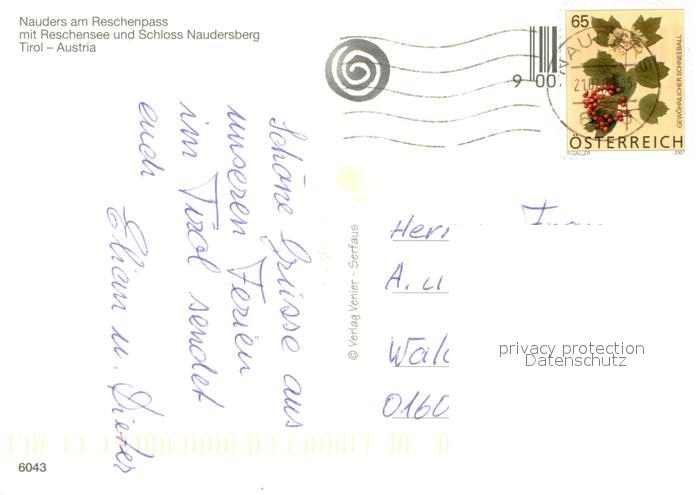 Nauders am Reschenpass
mit Reschensee und Schloss Naudersberg
Tirol – Austria
65
GEWÖHNLICHER SCHNEEBALL
ÖSTERREICH
R.GALLER 2007
9 00
Schöne Grüsse aus
unseren Ferien
im Tirol sendet
euch
Elian u. Dieter
© Verlag Venier - Serfaus
A. u
privacy protection
Datenschutz
0160
6043